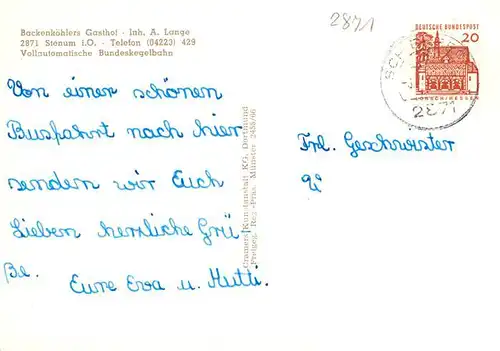 Backenköhlers Gasthof · Inh. A. Lange
2871 Stenum i.O. · Telefon (04223) 429
Vollautomatische Bundeskegelbahn
2871
DEUTSCHE BUNDESPOST
20
LORSCH/HESSEN
2871
Von einer schönen
Busfahrt nach hier
senden wir Euch
Lieben herzliche Grü-
ße.
Eure Eva u. Mutti.
Cramers Kunstanstalt KG, Dortmund
Freigeg. Reg.-Präs. Münster 3486/66
Frl. Geschwister